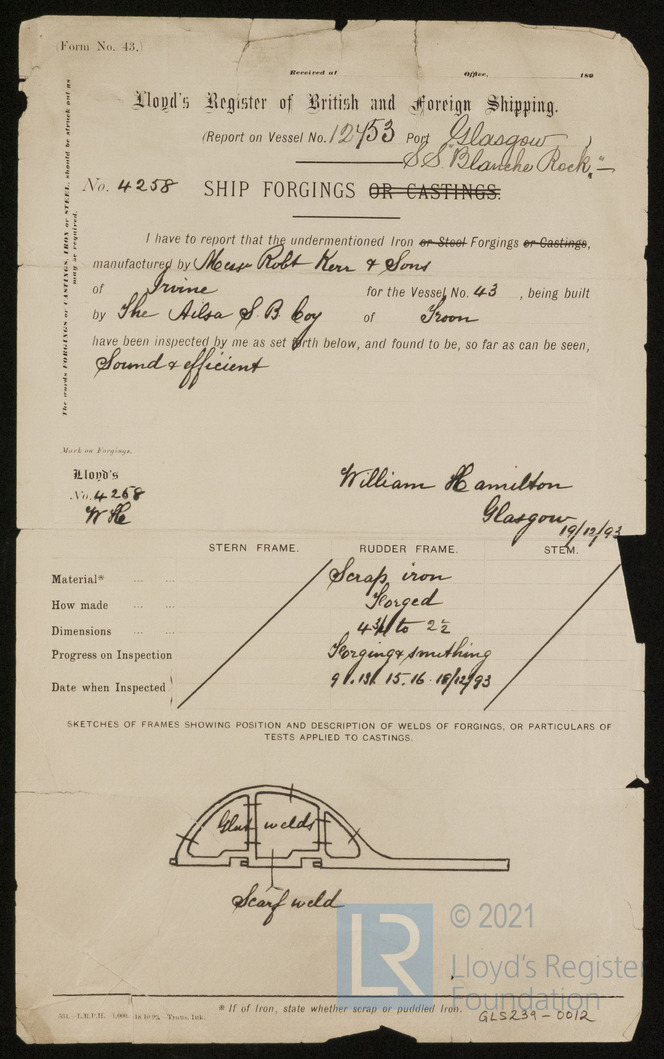 (Form No. 43.)
Received at Office, 189
Lloyd's Register of British and Foreign Shipping.
(Report on Vessel No. 12453 Port Glasgow )
S.S. "Blanche Rock" —
No. 4258 SHIP FORGINGS OR CASTINGS.
The words FORGINGS or CASTINGS, IRON or STEEL, should be struck out as
may be required.
I have to report that the undermentioned Iron or Steel Forgings or Castings,
manufactured by Messrs Robt Kerr & Sons
of Irvine for the Vessel No. 43 , being built
by The Ailsa S. B Coy of Troon
have been inspected by me as set forth below, and found to be, so far as can be seen,
Sound & efficient
Mark on Forgings.
Lloyd's
No. 4258
WH
William Hamilton
Glasgow
19/12/93
STERN FRAME. RUDDER FRAME. STEM.
Material* ... ... Scrap iron
How made ... ... Forged
Dimensions ... ... 4 3/4 to 2 1/2
Progress on Inspection Forging & smithing
Date when Inspected 9. 13. 15. 16. 18/12/93
SKETCHES OF FRAMES SHOWING POSITION AND DESCRIPTION OF WELDS OF FORGINGS, OR PARTICULARS OF
TESTS APPLIED TO CASTINGS.
Glut welds
Scarf weld
LR
© 2021
Lloyd's Register
Foundation
* If of Iron, state whether scrap or puddled Iron.
L.R.P.H. Trans. Ink.
GLS239-0012